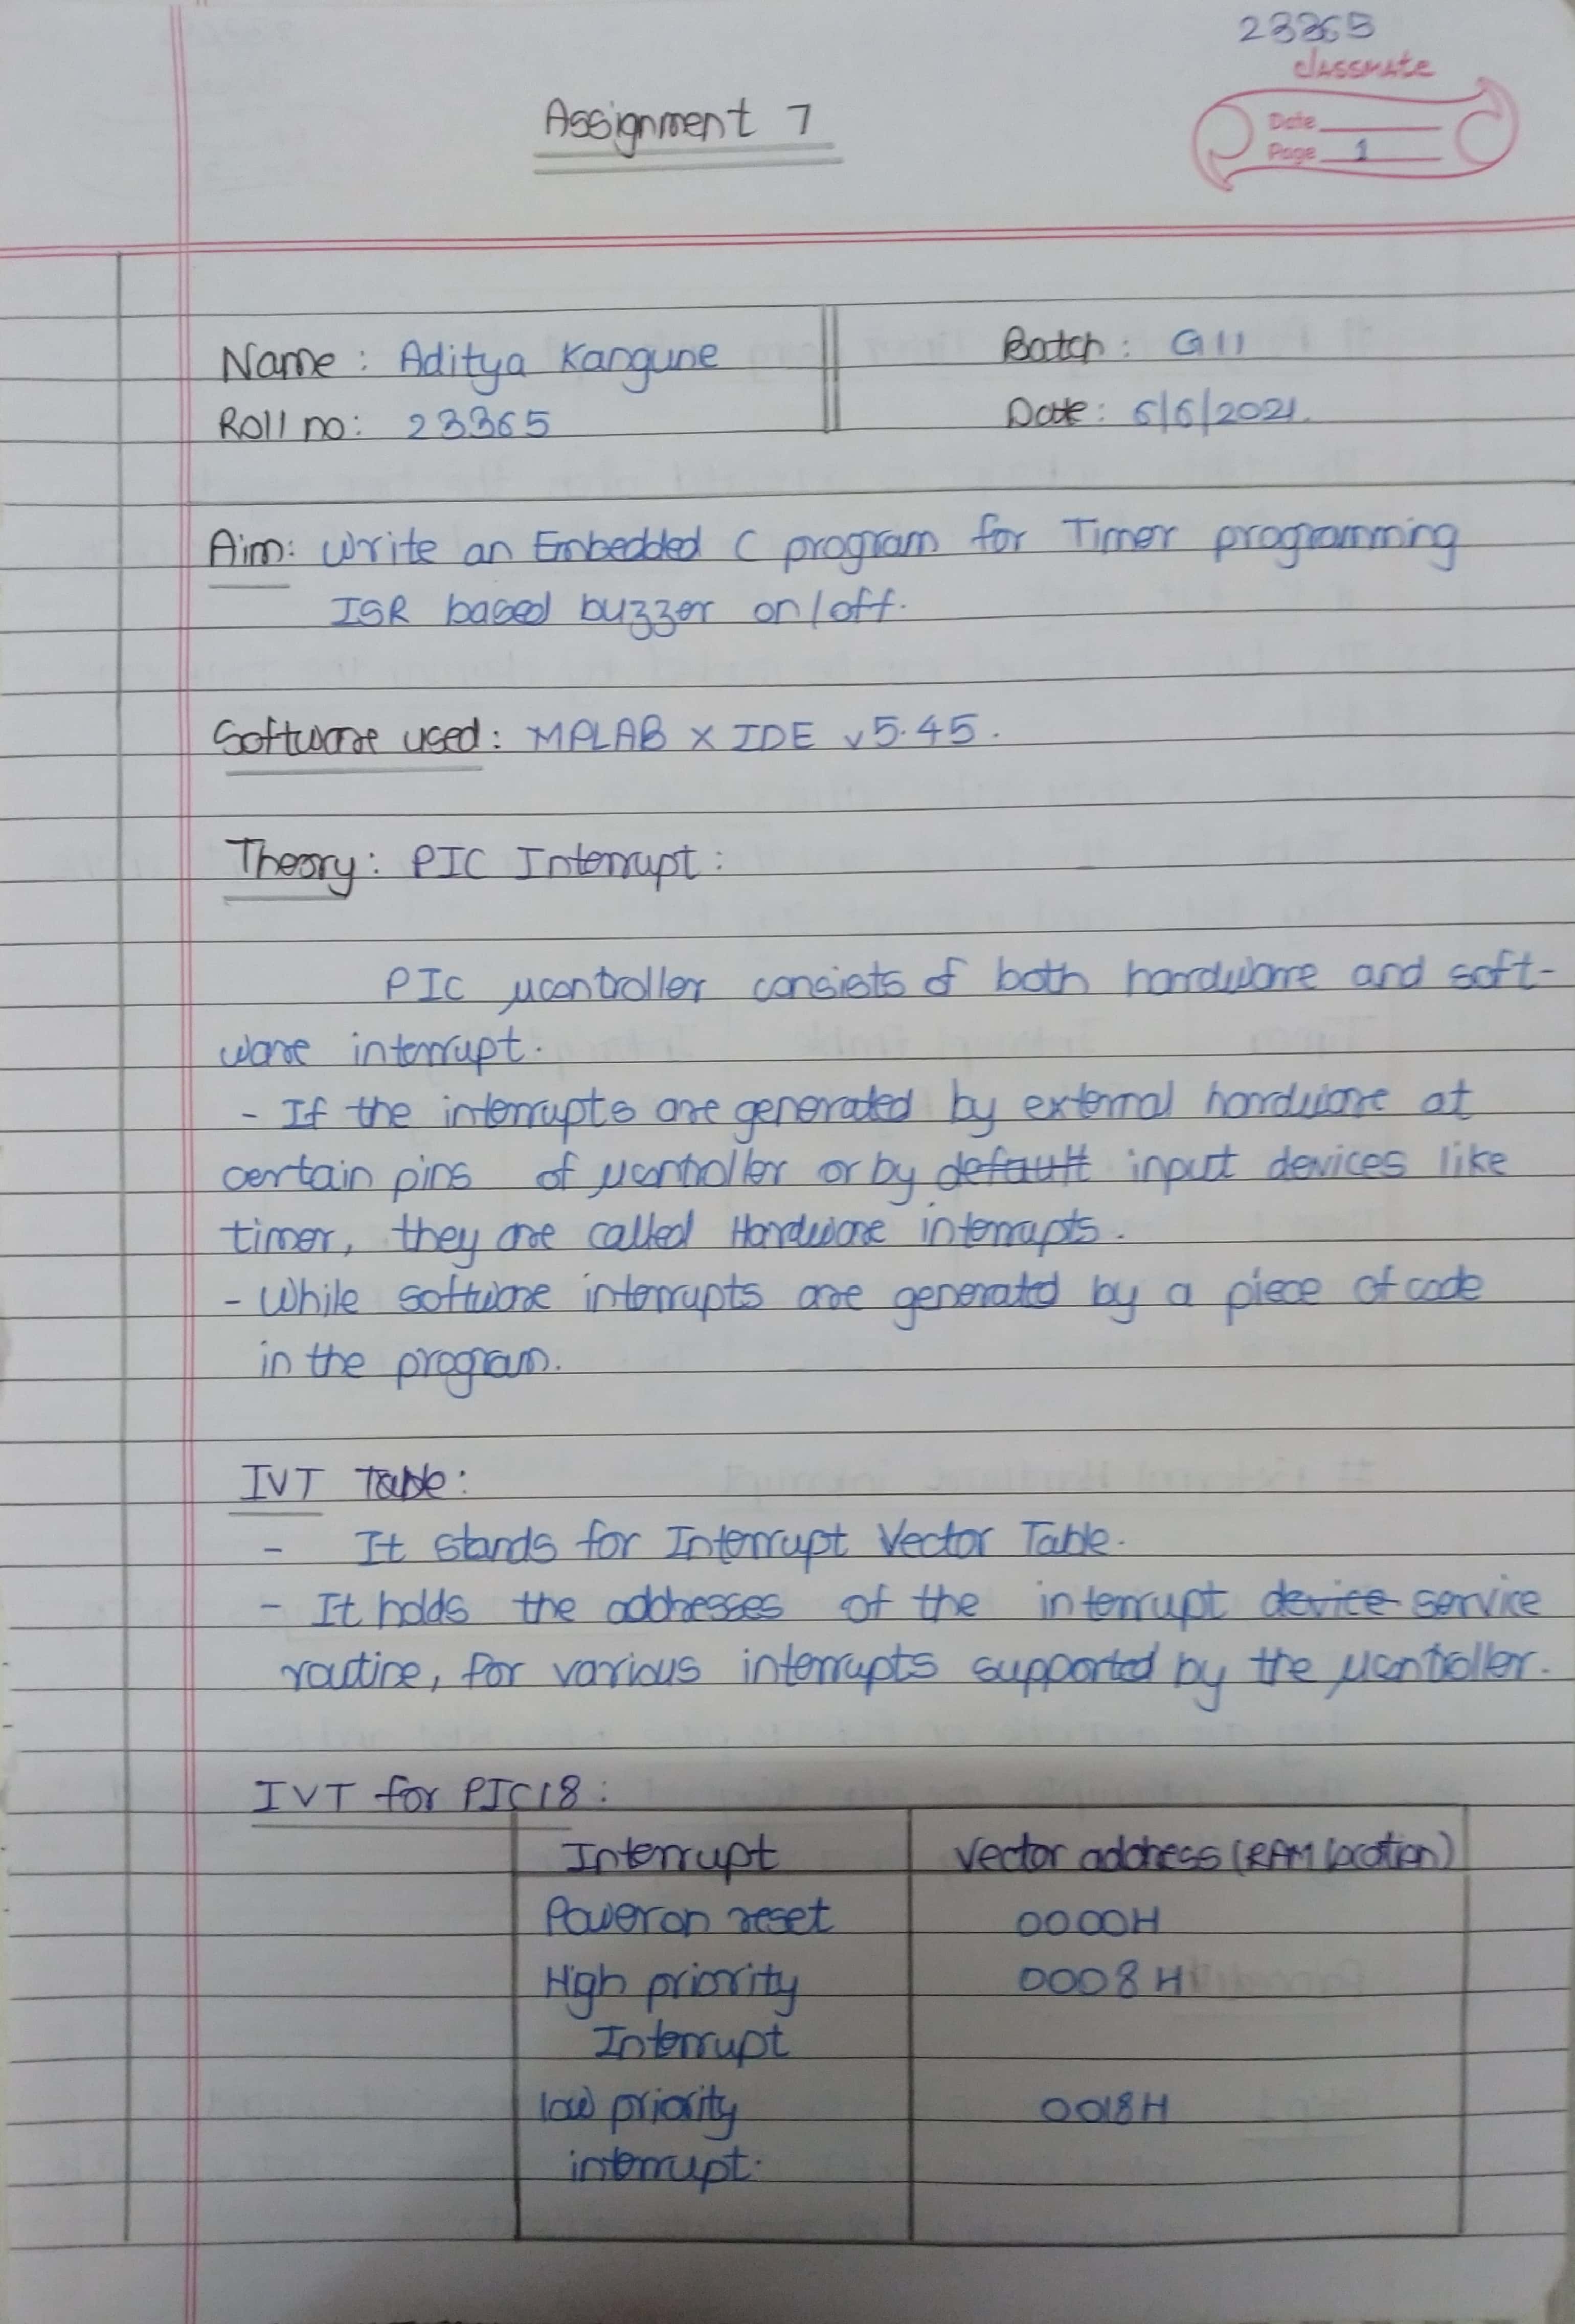 23365
classmate
Assignment 7
Date
Page 1
Name : Aditya Kangune
Batch : G11
Roll no : 23365
Date : 6/6/2021.
Aim: Write an Embedded C program for Timer programming
ISR based buzzer on/off.
Software used : MPLAB X IDE v5.45.
Theory : PIC Interrupt :
PIC μcontroller consists of both hardware and soft-
ware interrupt.
- If the interrupts are generated by external hardware at
certain pins of μcontroller or by default input devices like
timer, they are called Hardware interrupts.
- While software interrupts are generated by a piece of code
in the program.
IVT Table :
- It stands for Interrupt Vector Table.
- It holds the addresses of the interrupt device service
routine, for various interrupts supported by the μcontroller.
IVT for PIC18 :
Interrupt Vector address (RAM location)
Power on reset 0000H
High priority 0008H
Interrupt
low priority 0018H
interrupt.